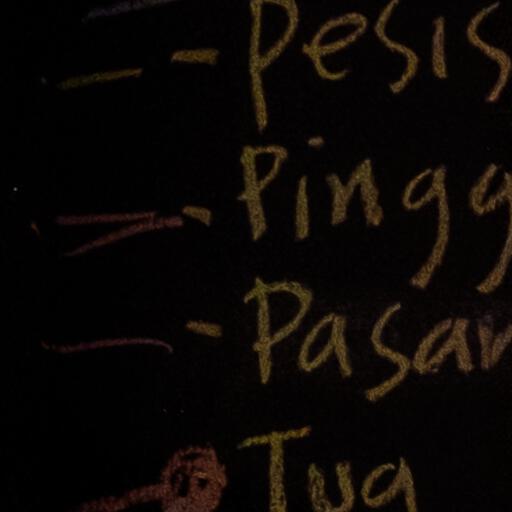 - Pesis
- Pingg
- Pasar
Tua